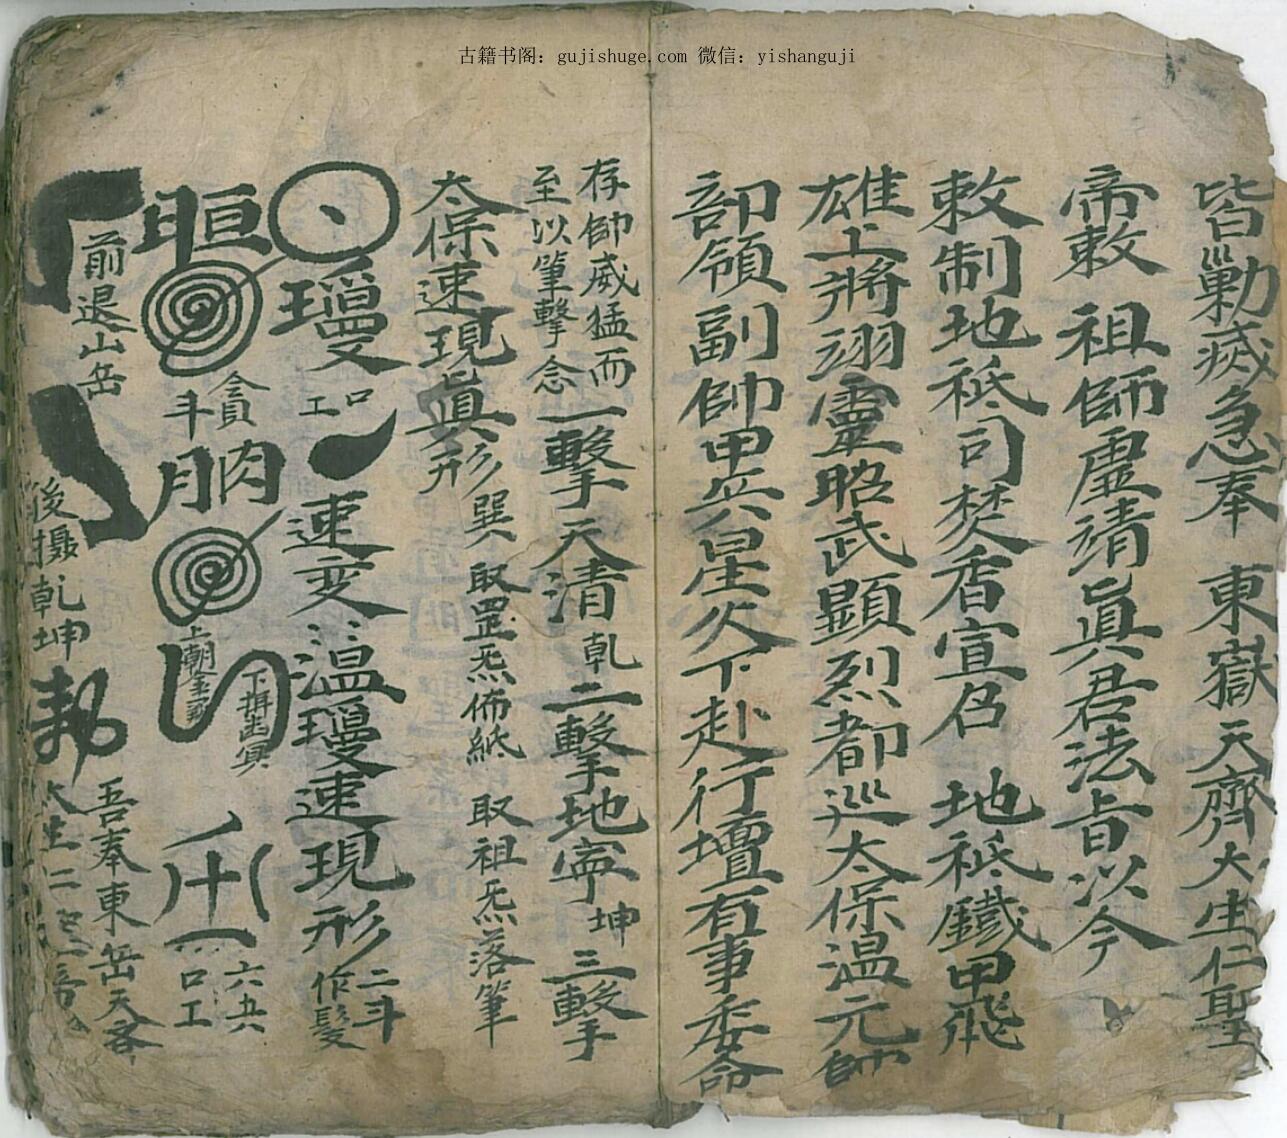 古籍书阁：gujishuge.com 微信：yishanguji
皆巢勦滅急奉 東嶽天齊大生仁聖
帝敕 祖師虛靖眞君法旨以今
敕制地祇司焚香宣召 地祇鐵甲飛
雄上將翊靈昭武顯烈都巡太保溫元帥
部領副帥甲兵星火下赴行壇有事委命
存帥威猛而
至以筆擊念
一擊天清乾二擊地寧坤三擊
太保速現眞形巽 取罡炁佈紙 取祖炁落筆
瓊 口工 速变溫瓊速現形 二斗
作髮
晅 貪斗 肭 上朝 下
六五六
口工
前退山岳
後攝乾坤
吾奉東岳天齊